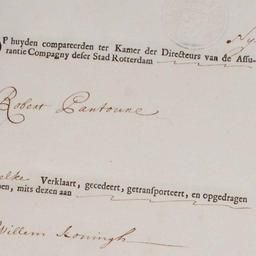 Op huyden compareerden ter Kamer der Directeurs van de Assu-
rantie Compagny deser Stad Rotterdam
Robert Pantoune
elke Verklaart, gecedeert, getransporteert, en opgedragen
en, mits dezen aan
Willem Koningh